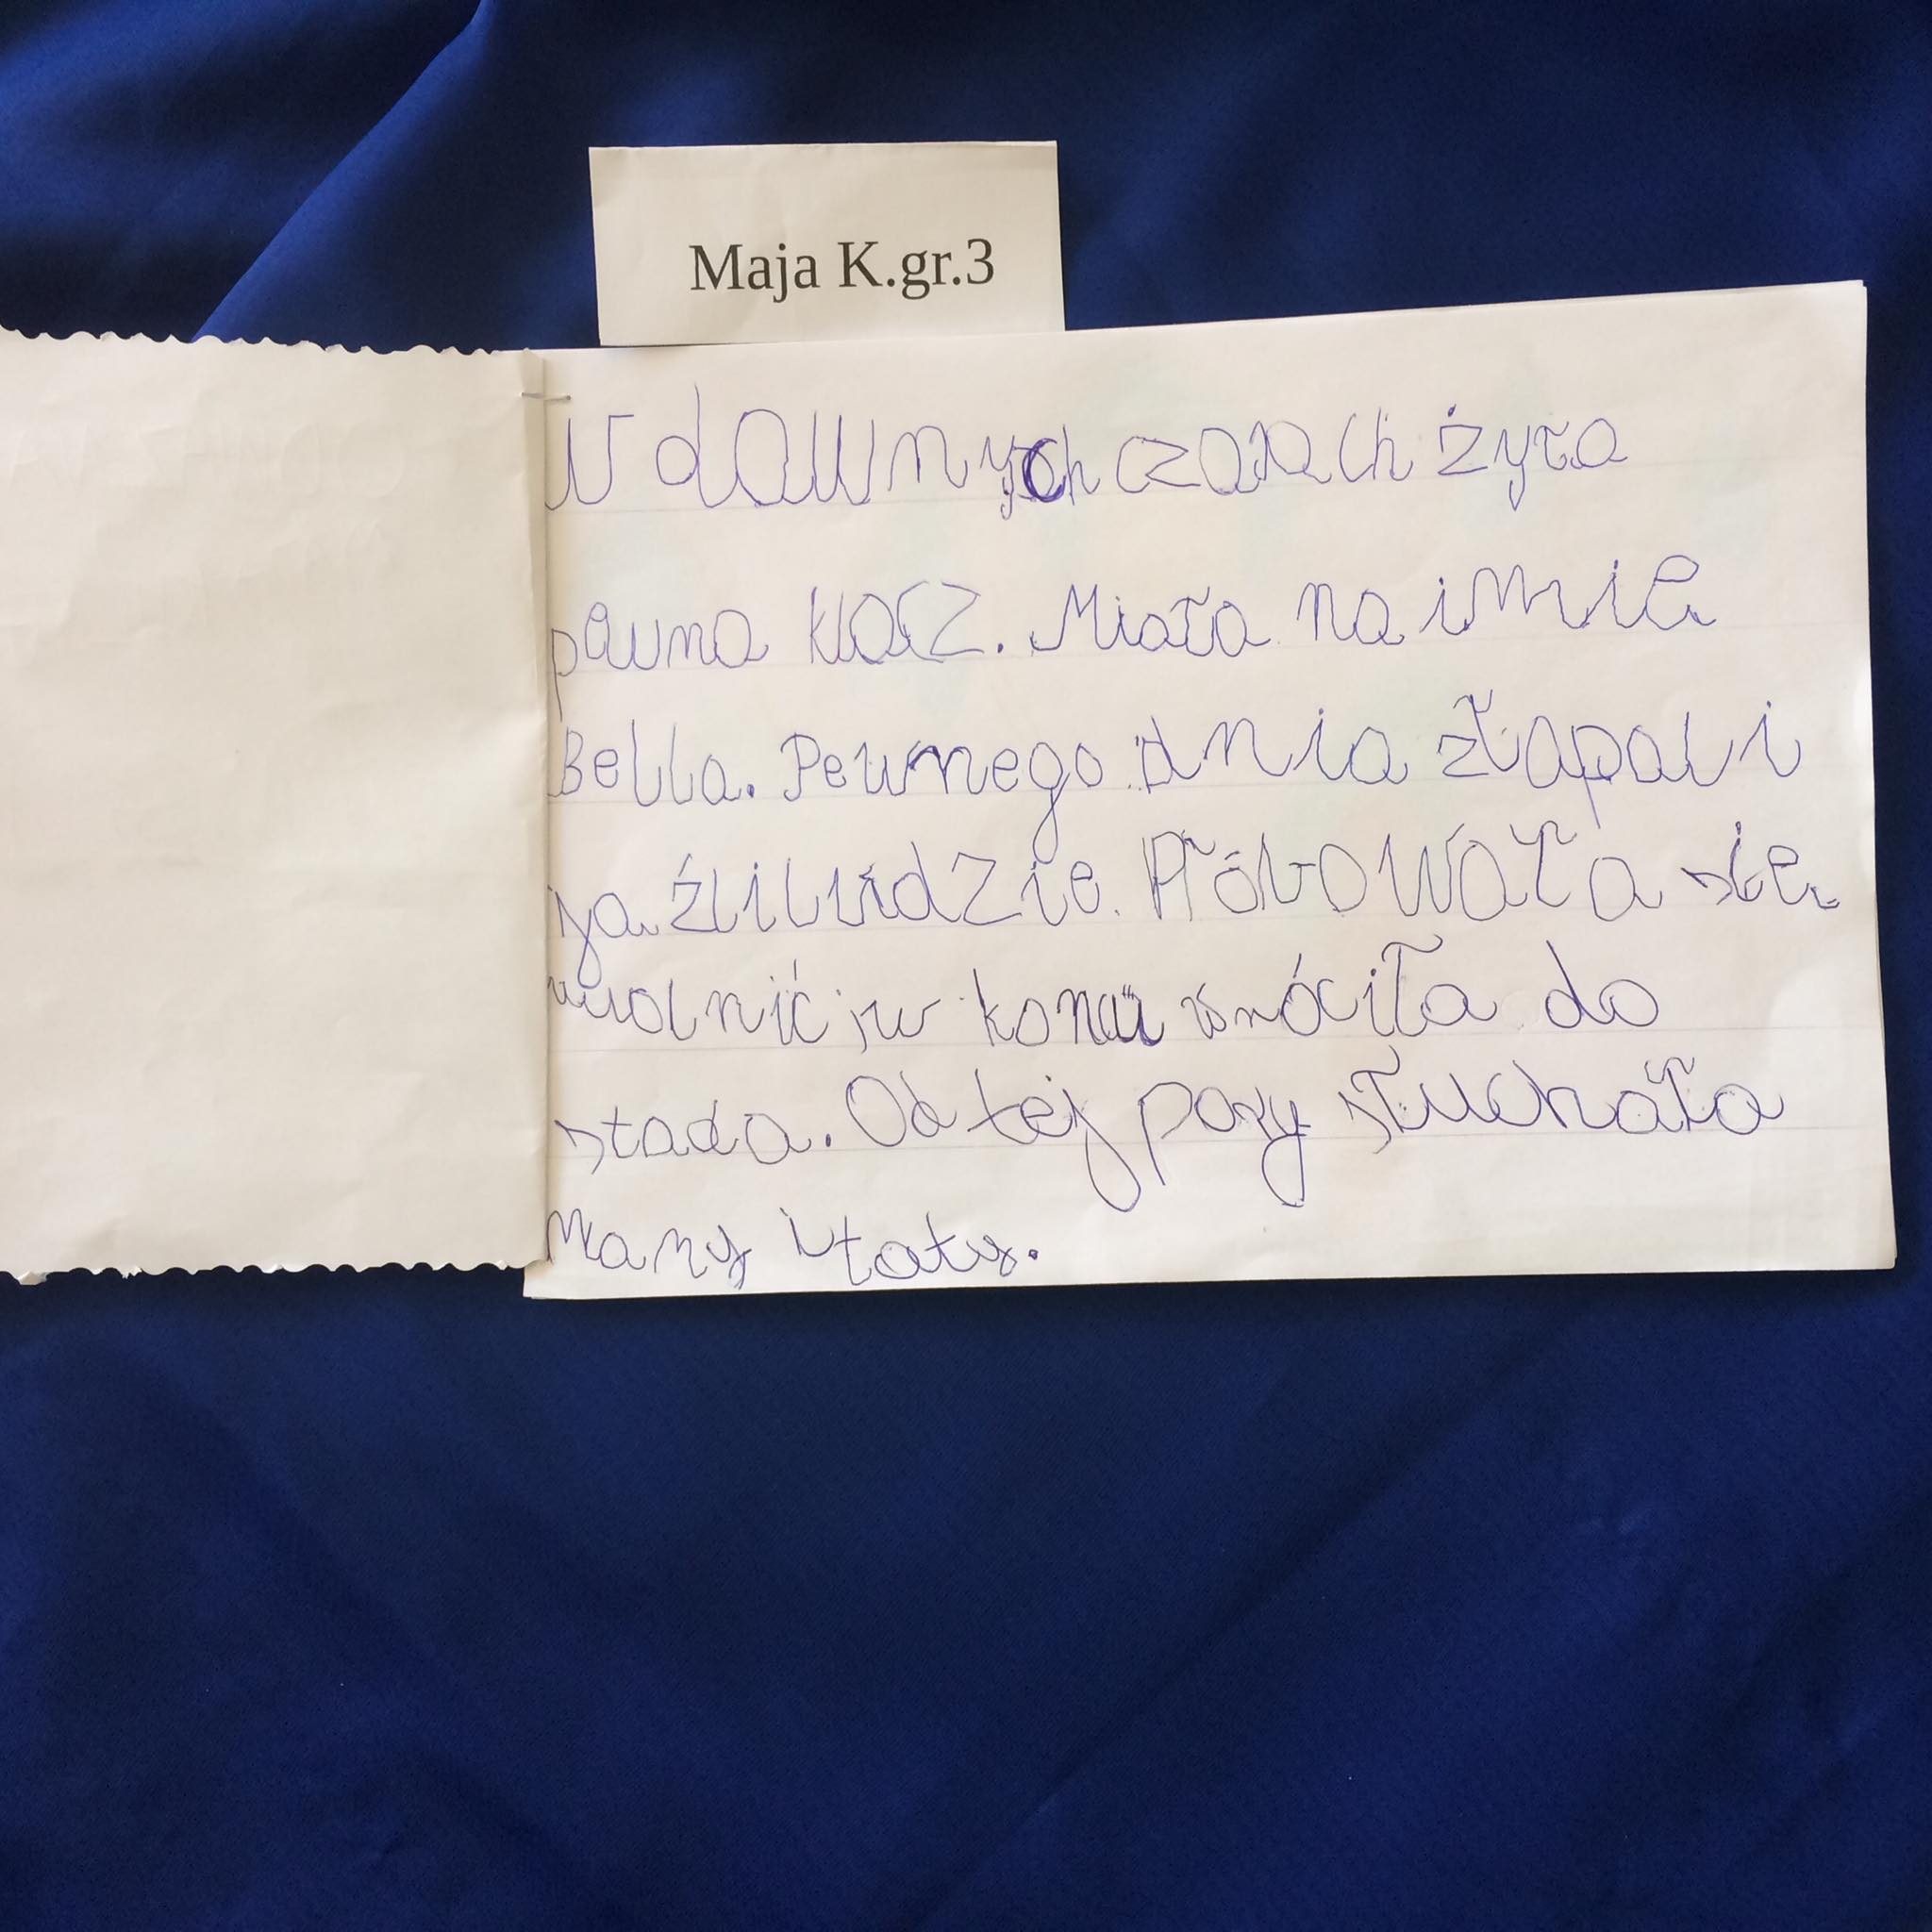 Maja K.gr.3
W dawnych czasach żyła
pewna klacz. Miała na imie
Bella. Pewnego dnia złapali
ją źli ludzie. Próbowała się
uwolnić i w końcu wróciła do
stada. Od tej pory słuchała
Mamy i taty.